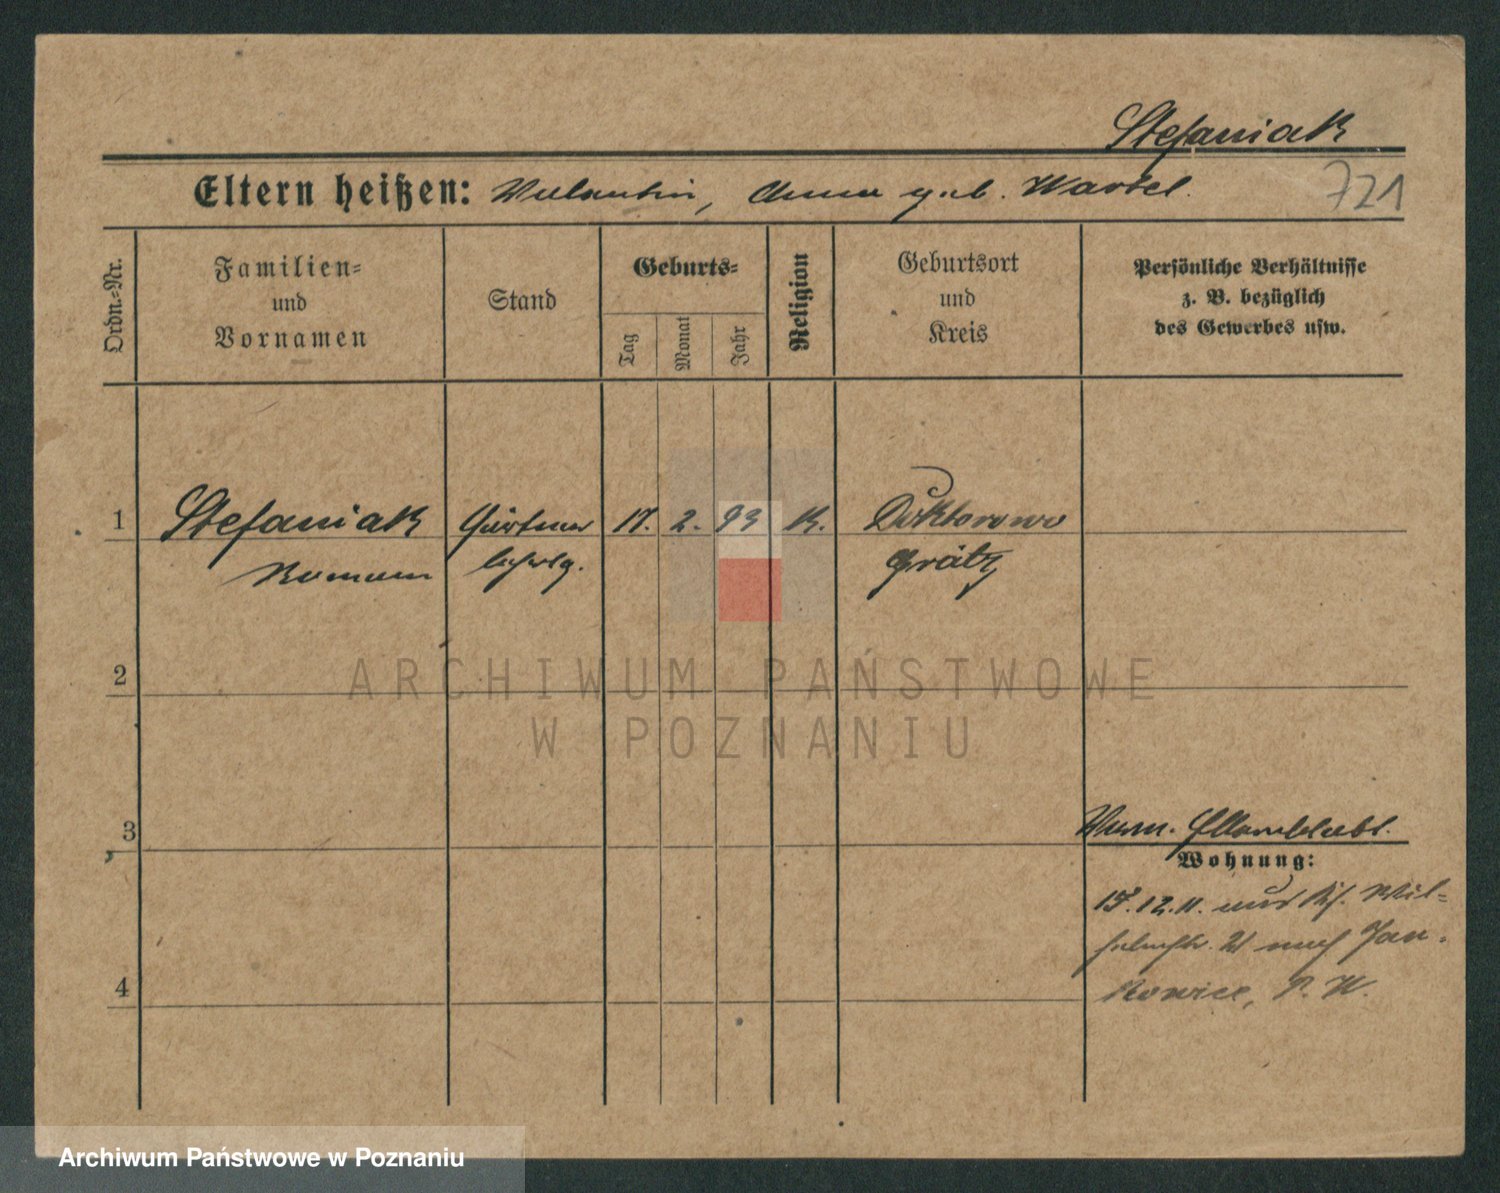 Stefaniak
Eltern heißen: Valentin, Anna geb. Wartel.
721
Ordn.=Nr.
Familien=
und
Vornamen
Stand
Geburts=
Tag
Monat
Jahr
Religion
Geburtsort
und
Kreis
Persönliche Verhältnisse
z. B. bezüglich
des Gewerbes usw.
1 Stefaniak Gärtner 17. 2. 93 K. Doktorowo
Roman lehrlg. Grätz
2
3
Wohnung:
17.12.11. Wil=
helmstr. nach Jan=
kowice, P. W.
4
ARCHIWUM PAŃSTWOWE
W POZNANIU
Archiwum Państwowe w Poznaniu